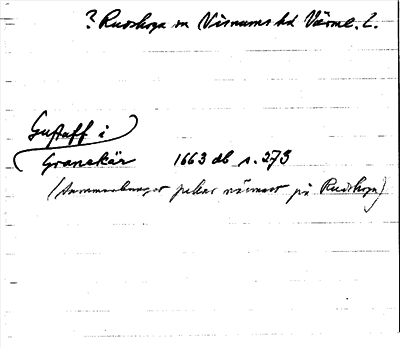 ? Rudskoga sn Visnums hd Värml. l.
Gustaff i
Granskär 1663 db s. 273
(Sammanhanget pekar närmast på Rudskoga)